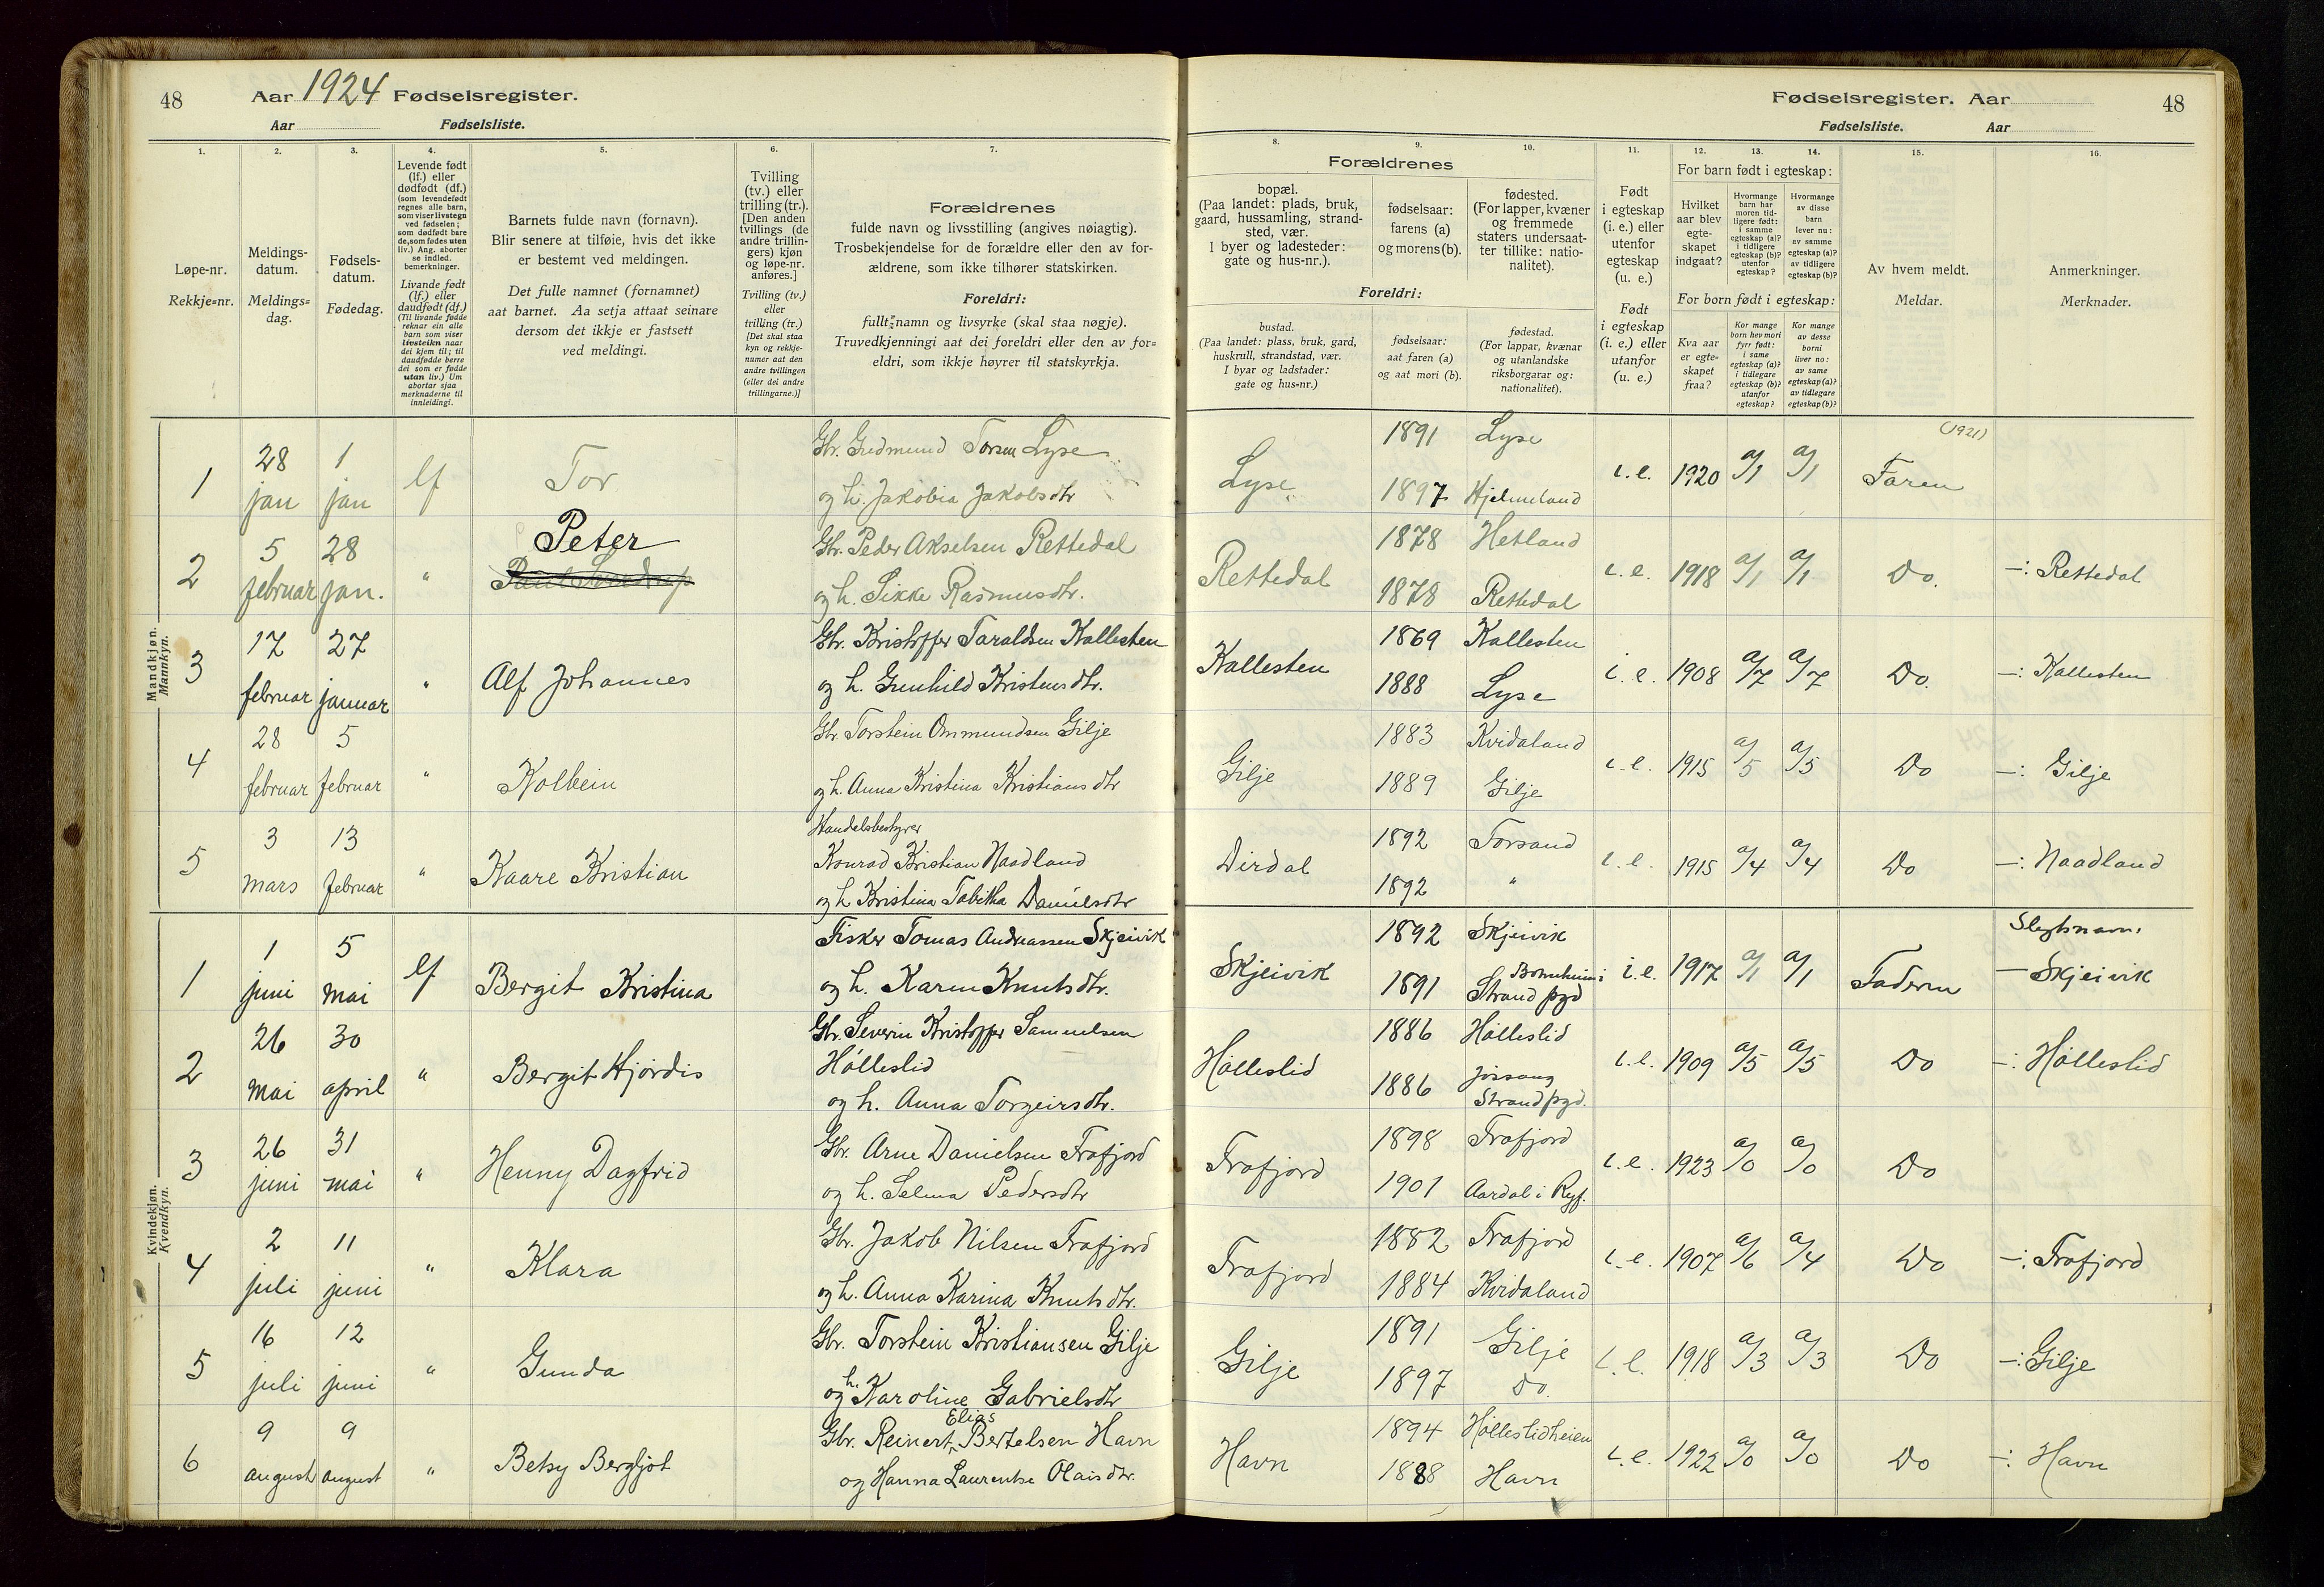 48 Aar 1924 Fødselsregister.
Aar Fødselsliste.
Fødselsregister. Aar 48
Fødselsliste. Aar
1. 2. 3. 4. 5. 6. 7.
Løpe-nr.
Rekkje-nr.
Meldings-
datum.
Meldings-
dag.
Fødsels-
datum.
Fødedag.
Levende født
(lf.) eller
dødfødt (df.)
(som levendefødt
regnes alle barn,
som viser livstegn
ved fødselen;
som dødfødt bare
de, som fødes uten
liv.) Ang. aborter
se indled.
bemerkninger.
Livande født
(lf.) eller
daudfødt (df.)
(Til livande fødde
reknar ein alle
barn som viser
livsteikn naar
dei kjem til; til
daudfødde berre
dei som er fødde
utan liv.) Um
abortar sjaa
merknaderne til
innleidingi.
Barnets fulde navn (fornavn).
Blir senere at tilføie, hvis det ikke
er bestemt ved meldingen.
Det fulle namnet (fornamnet)
aat barnet. Aa setja attaat seinare
dersom det ikkje er fastsett
ved meldingi.
Tvilling
(tv.) eller
trilling (tr.).
[Den anden
tvillings (de
andre trillin-
gers) kjøn
og løpe-nr.
anføres.]
Tvilling (tv.)
eller
trilling (tr.)
[Det skal staa
kyn og rekkje-
numer aat den
andre tvillingen
(eller dei andre
trillingarne.)]
Forældrenes
fulde navn og livsstilling (angives nøiagtig).
Trosbekjendelse for de forældre eller den av for-
ældrene, som ikke tilhører statskirken.
Foreldri:
fullt namn og livsyrke (skal staa nøgje).
Truvedkjenningi aat dei foreldri eller den av for-
eldri, som ikkje høyrer til statskyrkja.
8. 9. 10. 11. 12. 13. 14. 15. 16.
Forældrenes
bopæl.
(Paa landet: plads, bruk,
gaard, hussamling, strand-
sted, vær.
I byer og ladesteder:
gate og hus-nr.).
fødselsaar:
farens (a)
og morens (b).
fødested.
(For lapper, kvæner
og fremmede
staters undersaat-
ter tillike: natio-
nalitet).
Foreldri:
bustad.
(Paa landet: plass, bruk, gard,
huskrull, strandstad, vær.
I byar og ladstader:
gate og hus-nr.)
fødselsaar:
aat faren (a)
og aat mori (b).
fødestad.
(For lappar, kvænar
og utanlandske
riksborgarar og:
nationalitet).
Født
i egteskap
(i. e.) eller
utenfor
egteskap
(u. e.)
Født
i egteskap
(i. e.) eller
utanfor
(u. e.)
For barn født i egteskap:
Hvilket
aar blev
egte-
skapet
indgaat?
Hvormange
barn har
moren tid-
ligere født:
i samme
egteskap (a)?
i tidligere
egteskap (b)?
utenfor
egteskap?
Hvormange
av disse
barn
lever nu:
av samme
egteskap (a)?
av tidligere
egteskap (b)?
For born født i egteskap:
Kva aar
er egte-
skapet
fraa?
Kor mange
born hev mori
fyrr født:
i same
egteskap (a)?
i tidlegare
egteskap (b)?
utanfor
egteskap?
Kor mange
av desse
borni
liver no:
av same
egteskap (a)?
av tidlegare
egteskap (b)?
Av hvem meldt.
Meldar.
Anmerkninger.
Merknader.
Mandkjøn.
Mannkyn.
1 28 jan 1 jan lf Tor Gbr. Gudmund Torsen Lyse
og h. Jakobia Jakobsdtr
Lyse 1891 Lyse 1897 Hjelmeland i.e. 1920 a/1 a/1 (1921) Faren
2 5 februar 28 jan. " Peter
Gbr. Peder Akselsen Rettedal
og h. Sikke Rasmusdtr.
Rettedal 1878 Hetland 1878 Rettedal i.e. 1918 a/1 a/1 Do. —: Rettedal
3 17 februar 27 januar " Alf Johannes Gbr. Kristoffer Taraldsen Kallesten
og h. Gunhild Kristensdtr.
Kallesten 1869 Kallesten 1888 Lyse i.e. 1908 a/7 a/7 Do. —: Kallesten
4 28 februar 5 februar " Kolbein Gbr Torstein Ommundsen Gilje
og h. Anna Kristina Kristiansdtr
Gilje 1883 Kvidaland 1889 Gilje i.e. 1915 a/5 a/5 Do —: Gilje
5 3 mars 13 februar " Kaare Kristian Handelsbestyrer
Konrad Kristian Naadland
og h Kristina Tabitha Danielsdtr
Dirdal 1892 Forsand 1892 " i.e. 1915 a/4 a/4 Do —: Naadland
Kvindekjøn.
Kvendkyn.
1 1 juni 5 mai lf Bergit Kristina Fisker Tomas Andreassen Skjeivik
og h. Karen Knutsdtr.
Skjeivik 1892 Skjeivik 1891 Strand pgd i.e. 1917 a/1 a/1 Faderen Slegtsnavn:
— Skjeivik
2 26 mai 30 april " Bergit Hjördis Gbr. Severin Kristoffer Samuelsen
Hölleslid
og h. Anna Torgeirsdtr.
Hölleslid 1886 Hölleslid 1886 Jössang
Strand pgd. i.e. 1909 a/5 a/5 Do —: Hölleslid
3 26 juni 31 mai " Henny Dagfrid Gbr. Arne Danielsen Frafjord
og h. Selma Pedersdtr
Frafjord 1898 Frafjord 1901 Aardal i Ryf. i.e. 1923 a/0 a/0 Do
4 2 juli 11 juni " Klara Gbr. Jakob Nilsen Frafjord
og h. Anna Karina Knutsdtr.
Frafjord 1882 Frafjord 1884 Kvidaland i.e. 1907 a/6 a/4 Do —: Frafjord
5 16 juli 12 juni " Gunda Gbr. Torstein Kristiansen Gilje
og h. Karoline Gabrielsdtr
Gilje 1891 Gilje 1897 Do. i.e. 1918 a/3 a/3 Do —: Gilje
6 9 august 9 august " Betsy Bergljot Gbr. Reinert Elias Bertelsen Havn
og Hanna Laurentse Olaisdtr.
Havn 1894 Hölleslidheien 1888 Havn i.e. 1922 a/0 a/0 Do —: Havn